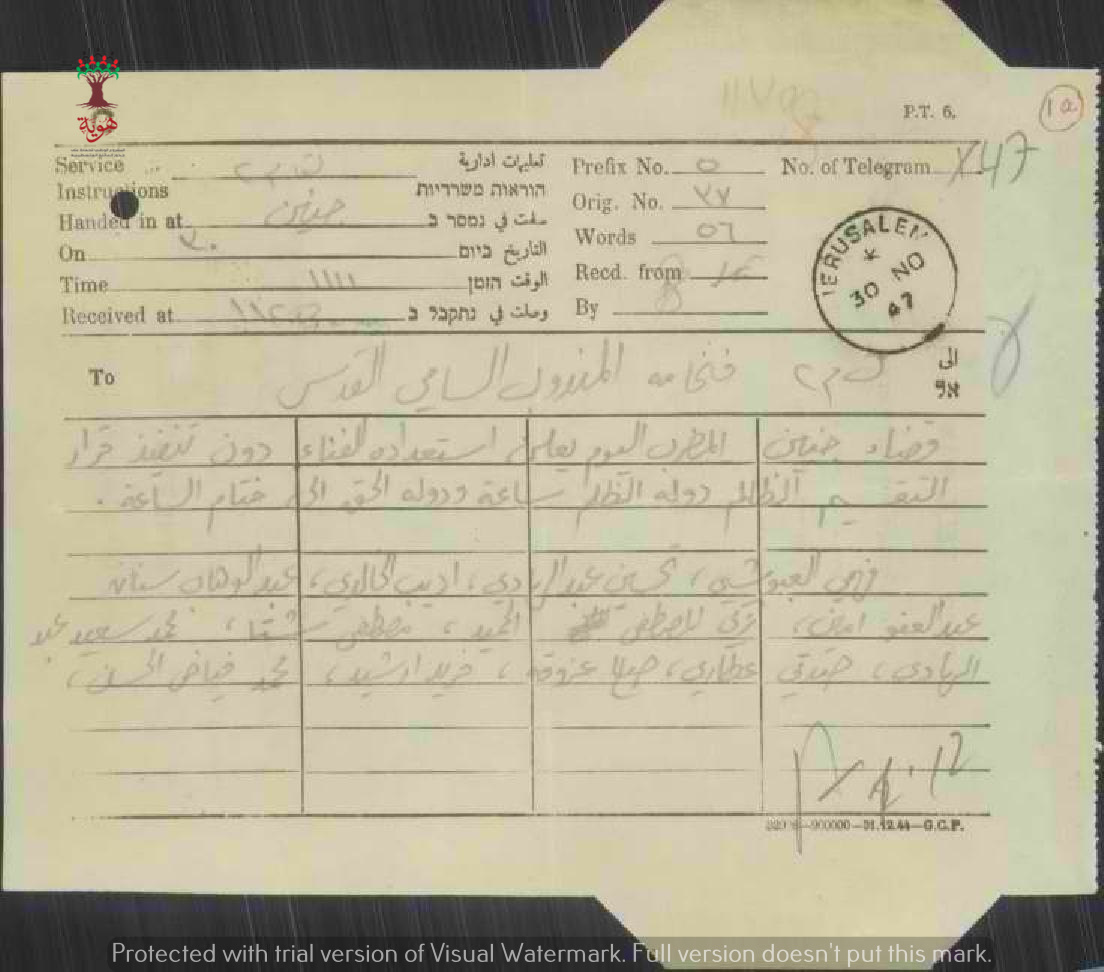 هوية
P.T. 6.
1a
Service تعليمات ادارية Prefix No. ٥ No. of Telegram X47
Instructions הוראות משרדיות Orig. No. ٧٧
Handed in at جنين سلمت في נמסר ב Words ٥٦
On ٣٠ التاريخ ביום Recd. from
Time ١١١١ الوقت הזמן By
Received at وصلت في נתקבל ב
JERUSALEM
30 NO
47
To فخامه المندوب السامي القدس الى אל
قضاء جنين المضرب اليوم يعلن استعداده للفناء دون تنفيذ قرار
التقسيم الظالم دولة الظلم ساعة ودولة الحق الى ختام الساعة .
فهمي العبوشي ، تحسين عبد الهادي ، اديب الخالدي ، عبد الوهاب
عبد الغني ، المصطفى الحميد ، مصطفى ، محمد سعيد عبد
الهادي ، صدقي عطاري ، صلاح عزوقه ، فريد ارشيد ، محمد فياض الحسن ،
900000—31.12.44—G.C.P.
Protected with trial version of Visual Watermark. Full version doesn't put this mark.